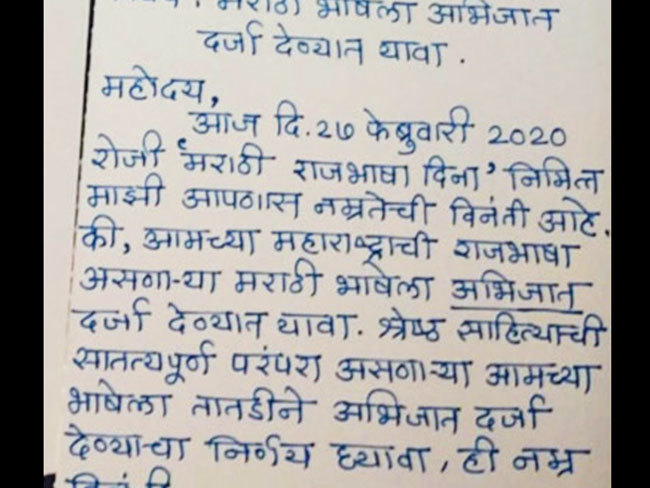 मराठी भाषेला अभिजात
दर्जा देण्यात यावा.
महोदय,
आज दि. २७ फेब्रुवारी 2020
रोजी 'मराठी राजभाषा दिना' निमित्त
माझी आपणास नम्रतेची विनंती आहे.
की, आमच्या महाराष्ट्राची राजभाषा
असणाऱ्या मराठी भाषेला अभिजात
दर्जा देण्यात यावा. श्रेष्ठ साहित्याची
सातत्यपूर्ण परंपरा असणाऱ्या आमच्या
भाषेला तातडीने अभिजात दर्जा
देण्याचा निर्णय घ्यावा, ही नम्र